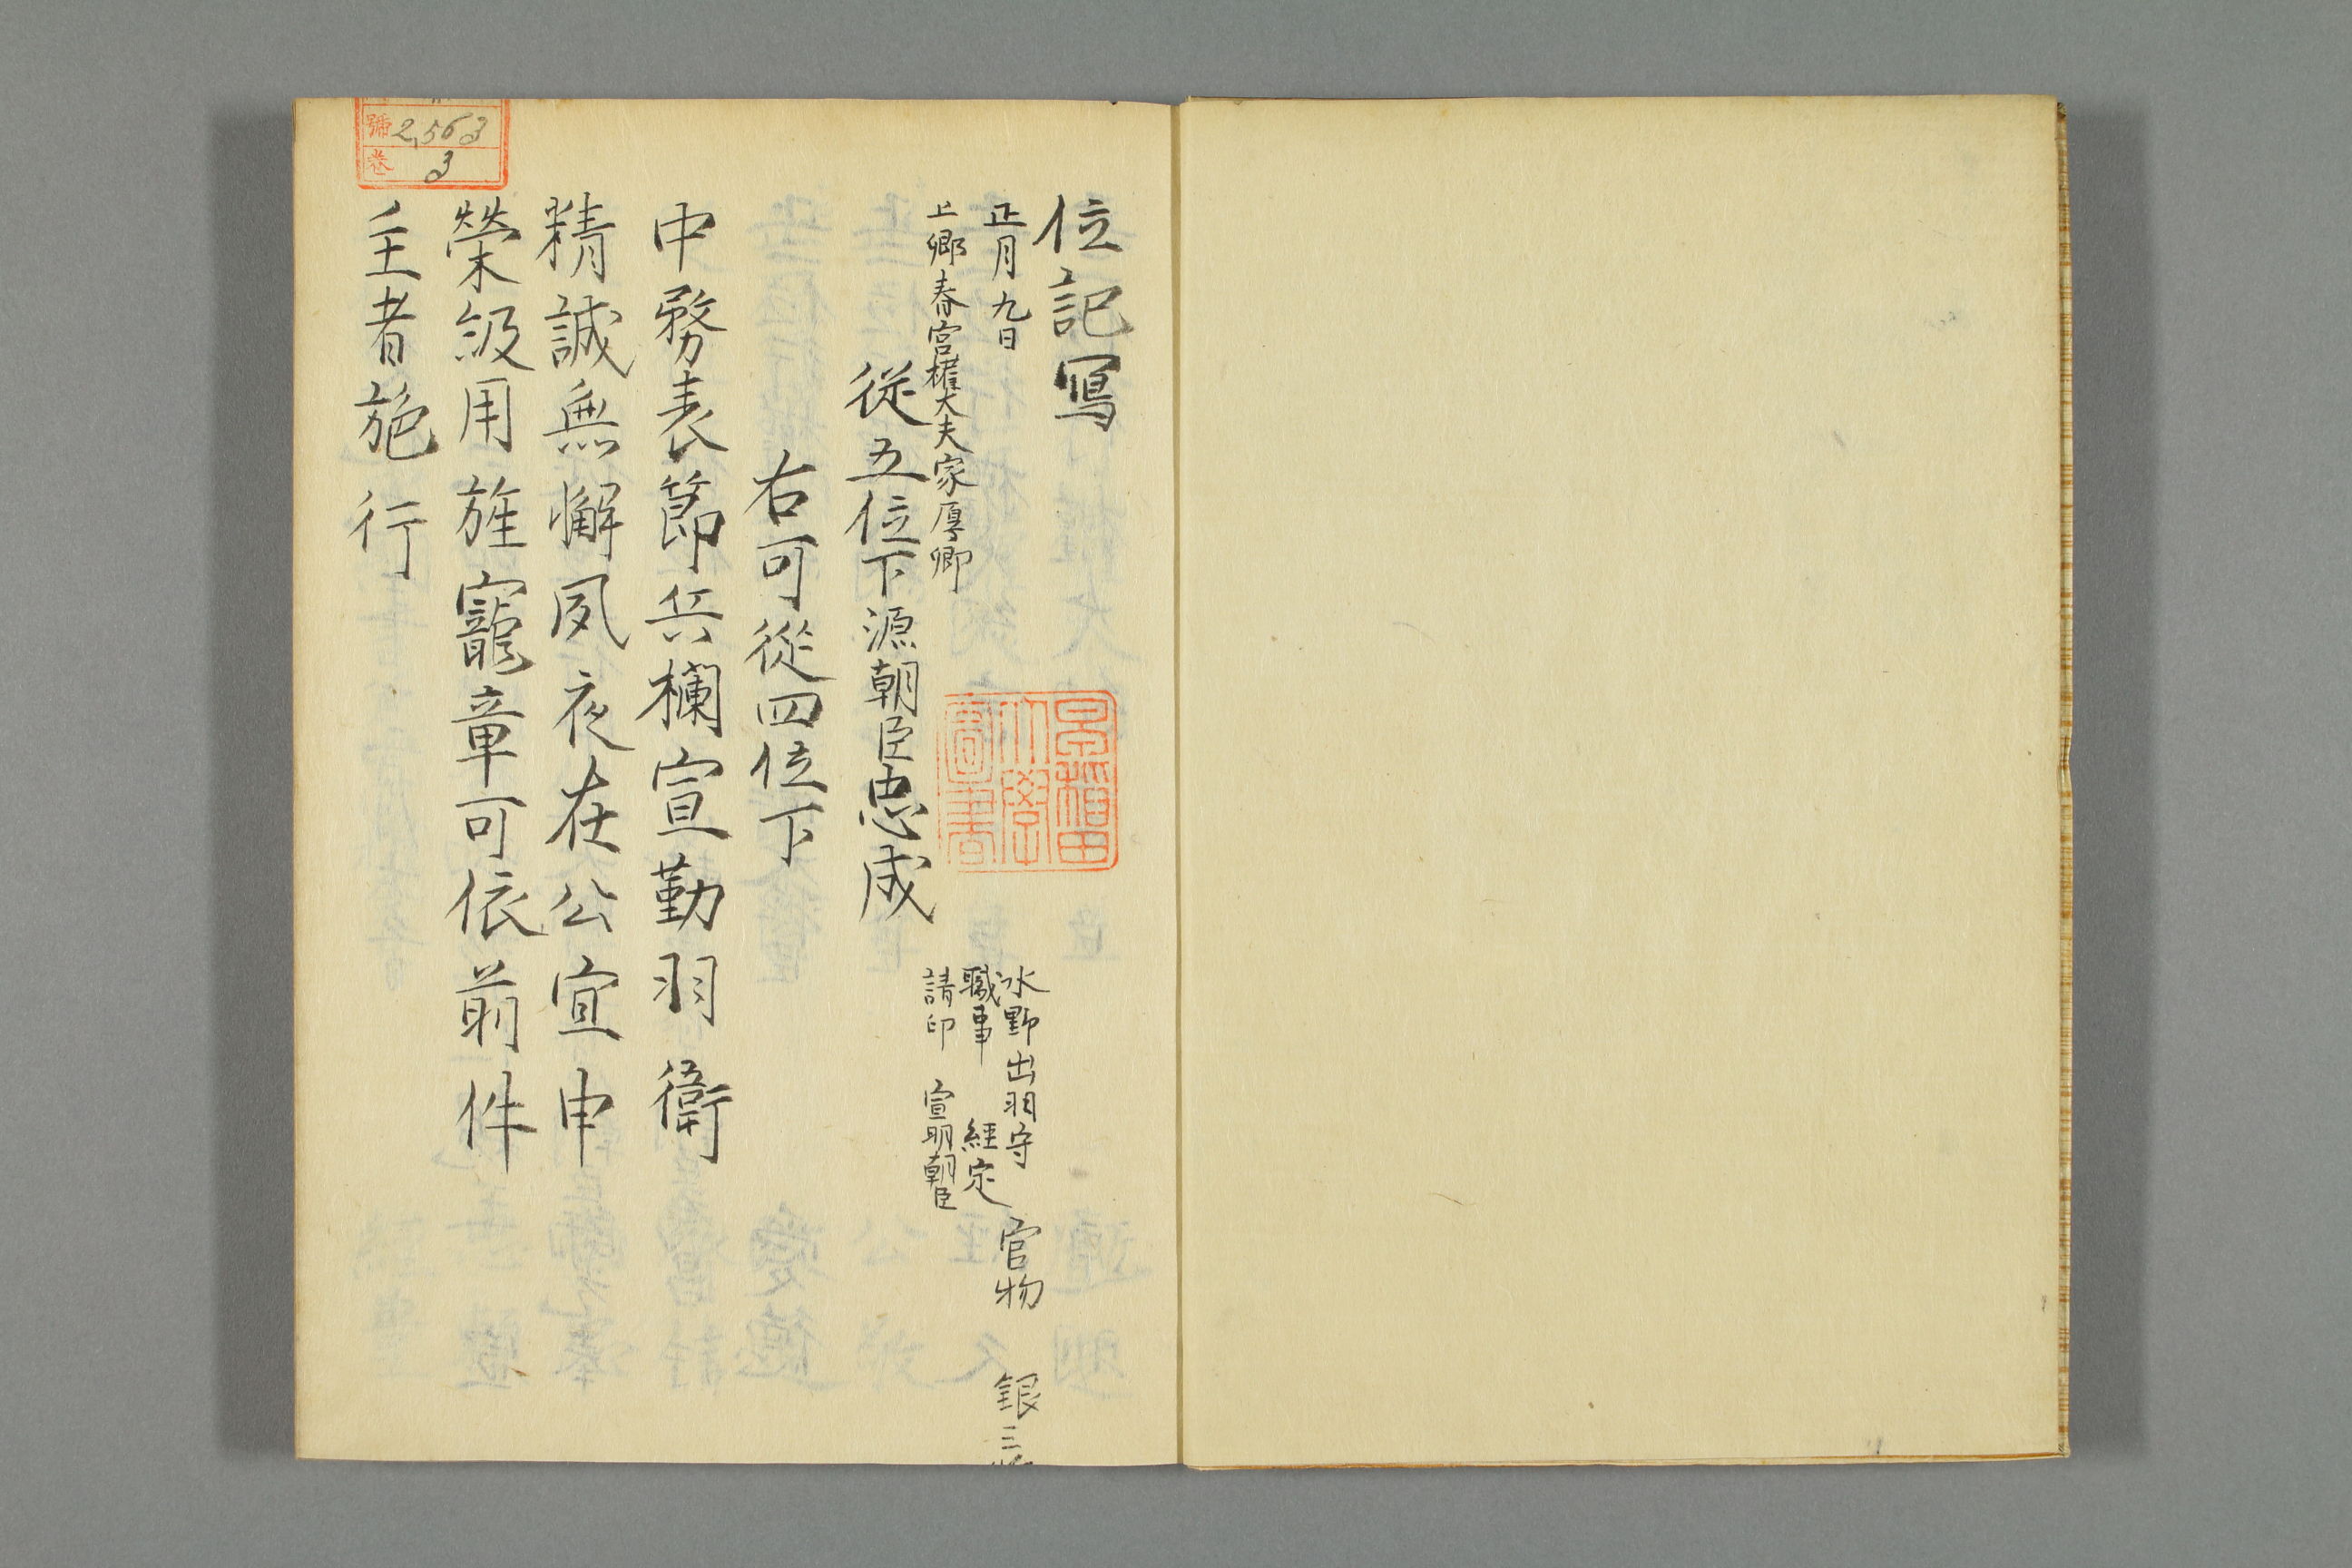 位記寫
正月九日
上卿春宮權大夫家厚卿
水野出羽守
官物
銀三
職事 經定
請印 宣明朝臣
從五位下源朝臣忠成
右可從四位下
中務表節兵欄宣勤羽衛
精誠無懈夙夜在公宜申
榮級用旌寵章可依前件
主者施行
早稻田
大學
圖書
號 2,563
卷 3